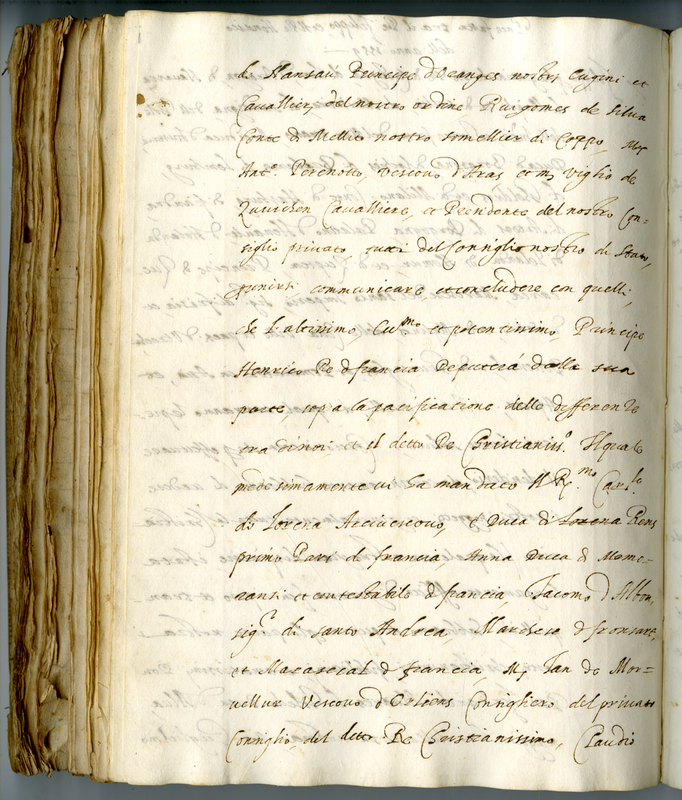 di Hansau Principe d'Oranges nostri Cugini et
Cavallieri del nostro ordine Ruigomes de Silua
Conte di Mellito nostro somellier di Corpo, Mr
Ant.o Perenoto, Vescovo d'Aras, et mr Viglio de
Zuuichen Cavalliere, et Presidente del nostro Con=
siglio privato, tutti del Consiglio nostro di Stato,
punirsi communicare, et concludere con quelli,
che l'altissimo Ecc.mo et potentissimo, Principe
Henrico Re d francia Deputerà dalla sua
parte, sop.a la pacificatione delle differentie
tra di noi et il detto Re Christianiss.o Il quale
medesimamente vi ha mandato Il R.mo Car.le
di Lorena Arcivescovo, è Duca di Rens
primo Pari di francia, Anna Duca di Mome=
ransi et contestabile d francia, Jacomo d'Albon,
sig.r di santo Andrea, Marchese d fronsare,
et Marascial d francia, Mr Jan de Mor=
uellux Vescovo d'Orliens Consigliero del privato
Consiglio, del detto Re Christianissimo, Claudio